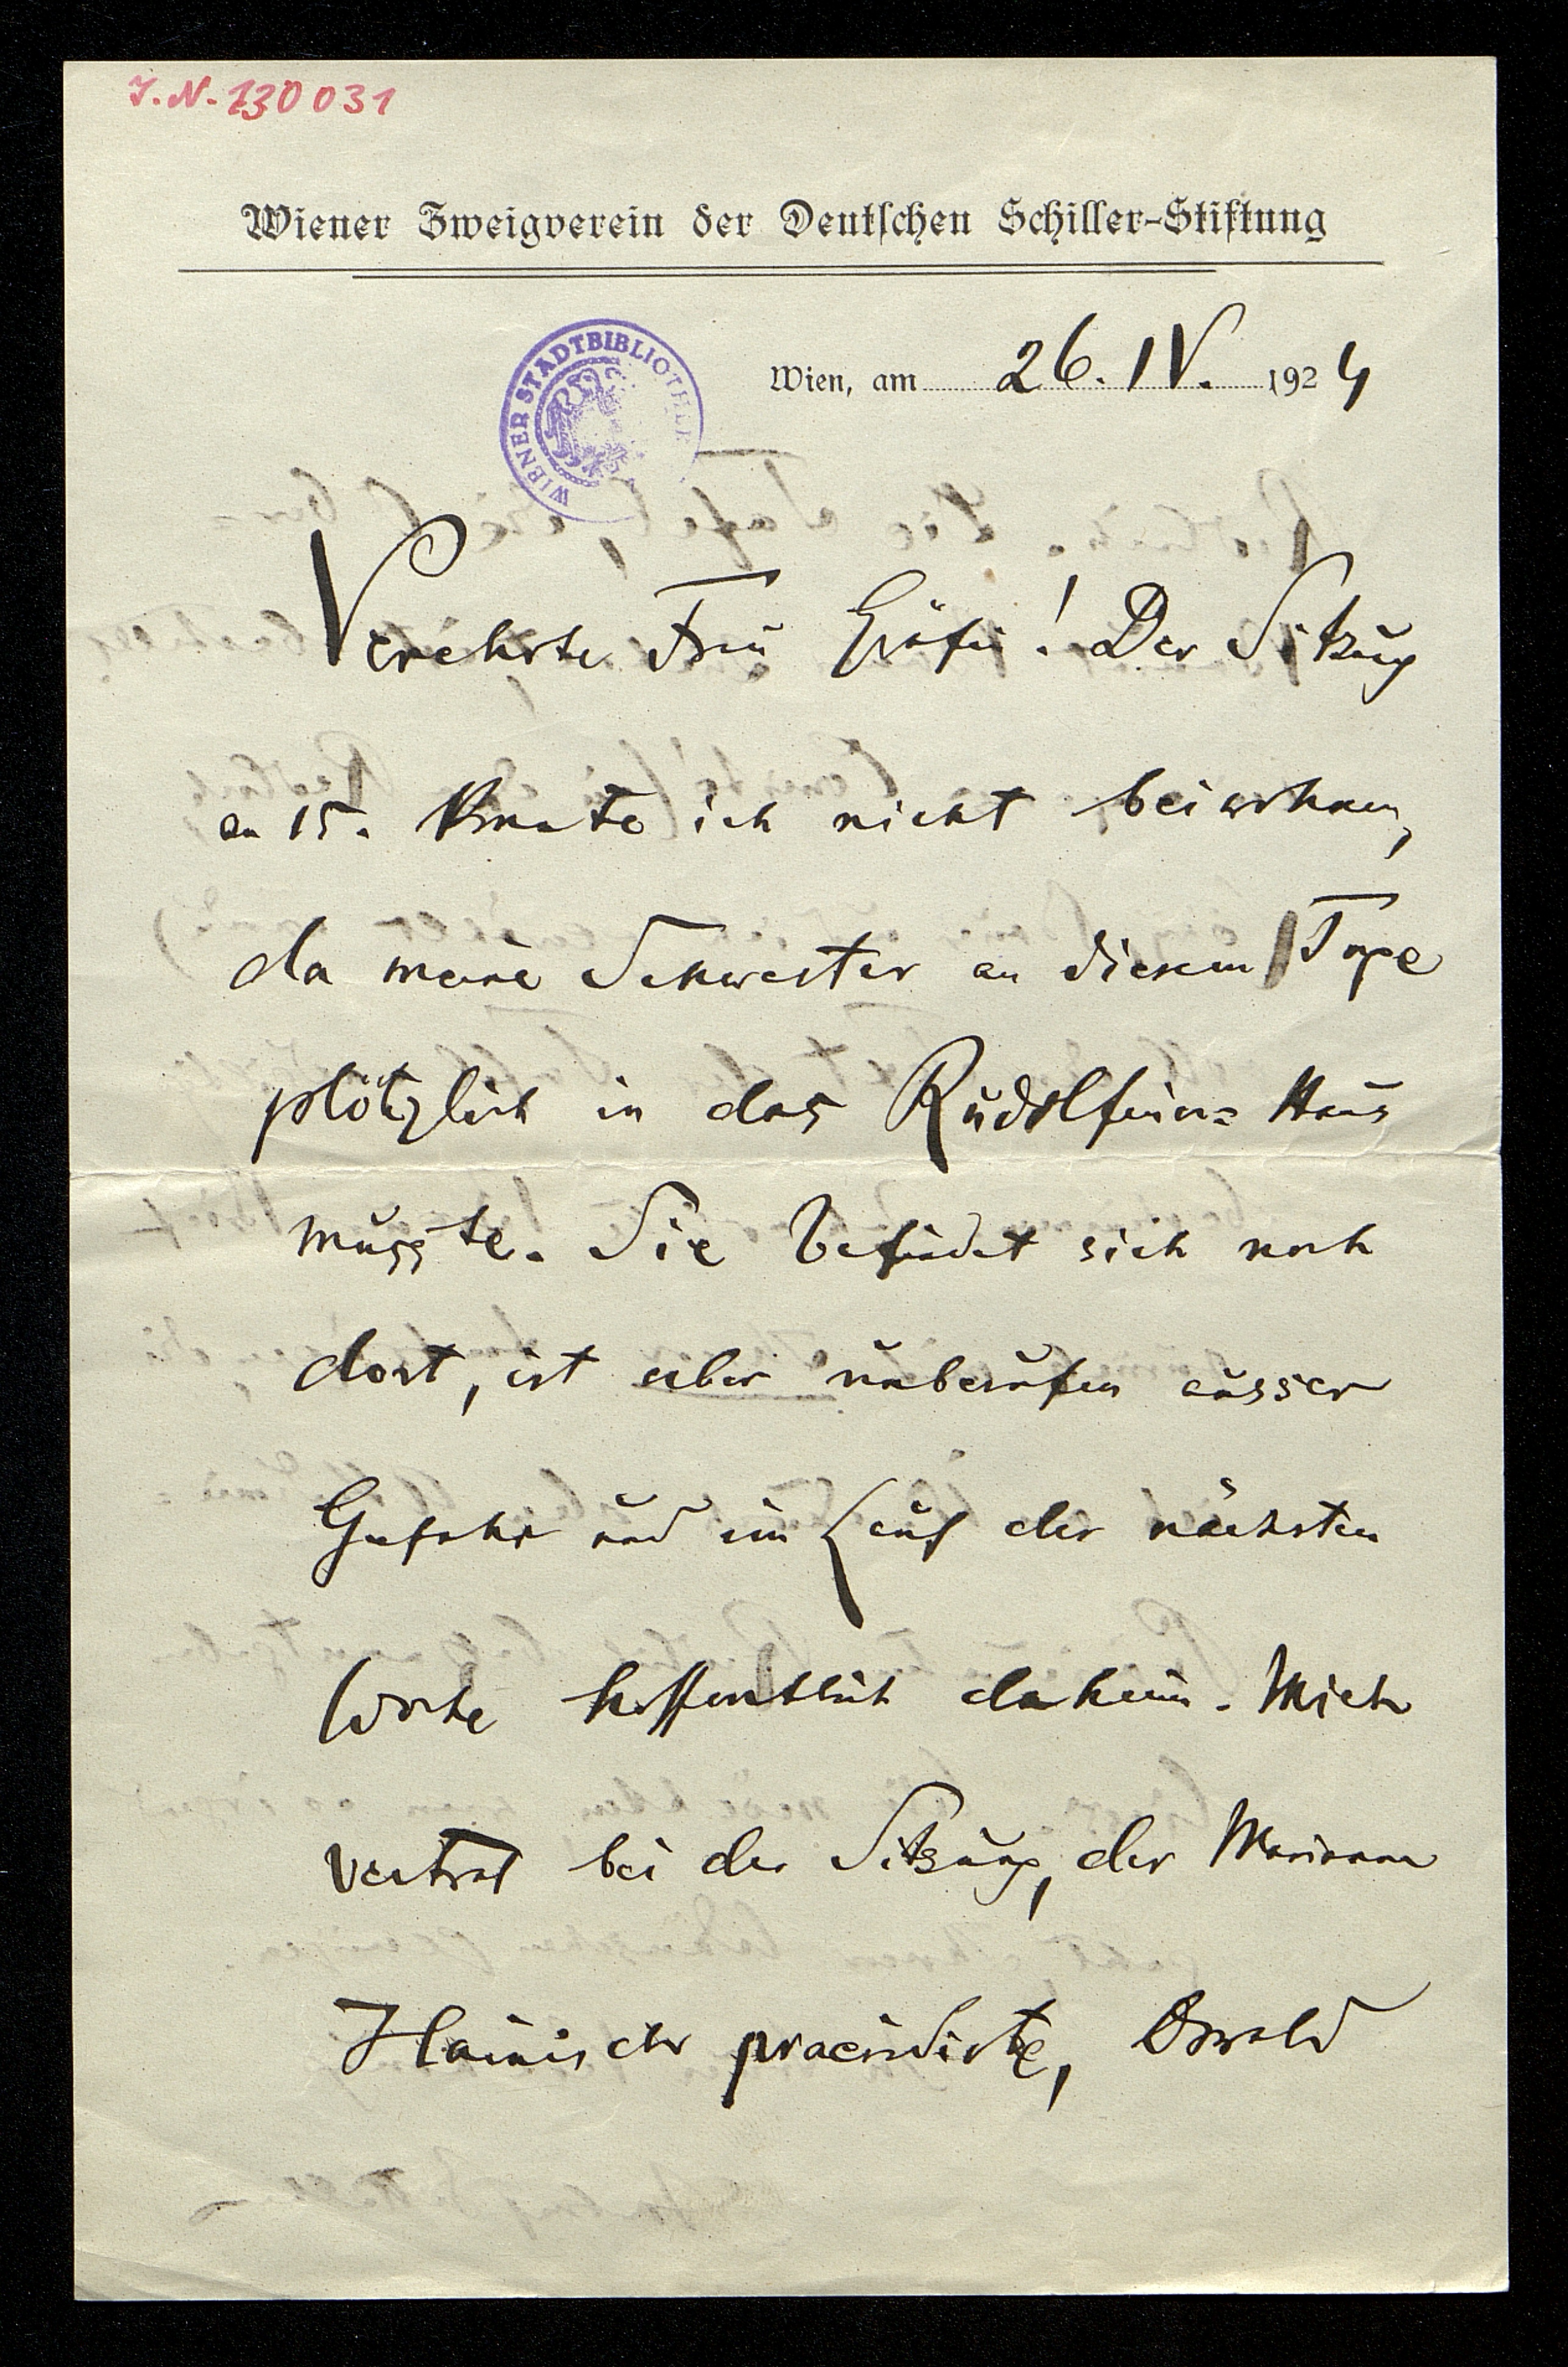 I.N. 130031
Wiener Zweigverein der Deutschen Schiller-Stiftung
WIENER STADTBIBLIOTHEK
Wien, am 26. IV. 1924
Verehrte Frau Gräfin! Der Sitzung
am 15. konnte ich nicht beiwohnen,
da meine Schwester an diesem Tage
plötzlich in das Rudolfiner-Haus
musste. Sie befindet sich noch
dort, ist aber unberufen ausser
Gefahr und im Lauf der nächsten
Woche hoffentlich daheim. Mich
vertrat bei der Sitzung, der Marianne
Hainisch praesidirte, Oswald